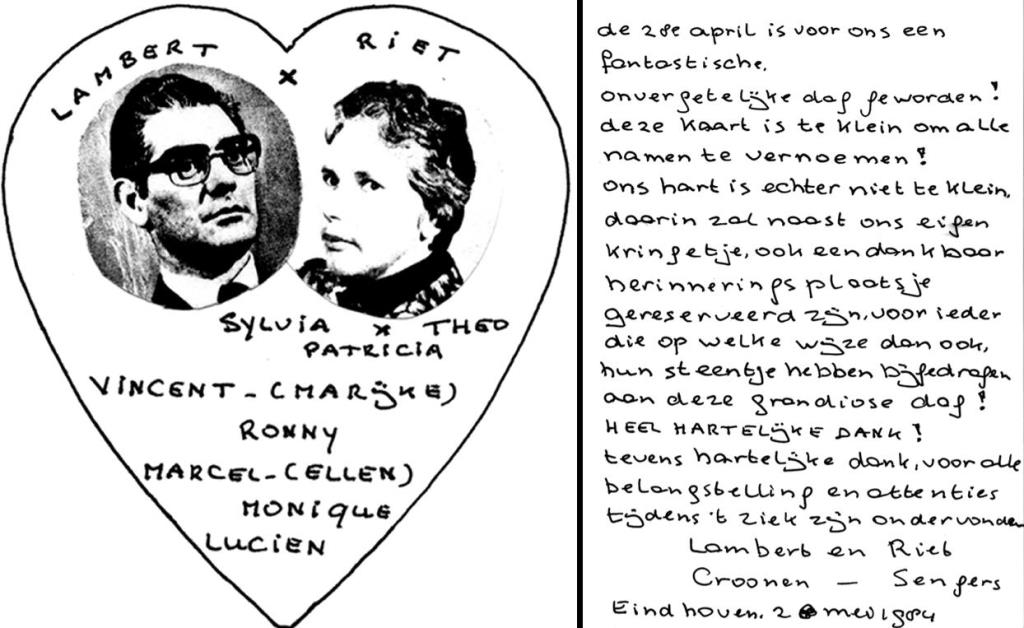 LAMBERT x RIET
SYLVIA x THEO
PATRICIA
VINCENT - (MARIJKE)
RONNY
MARCEL - (ELLEN)
MONIQUE
LUCIEN
de 28e april is voor ons een
fantastische,
onvergetelijke dag geworden!
deze kaart is te klein om alle
namen te vernoemen!
ons hart is echter niet te klein,
daarin zal naast ons eigen
kringetje, ook een dankbaar
herinneringsplaatsje
gereserveerd zijn, voor ieder
die op welke wijze dan ook,
hun steentje hebben bijgedragen
aan deze grandiose dag!
HEEL HARTELIJKE DANK!
tevens hartelijke dank, voor alle
belangstelling en attenties
tijdens 't ziek zijn ondervonden
Lambert en Riet
Croonen — Sengers
Eindhoven. 2 mei 1984